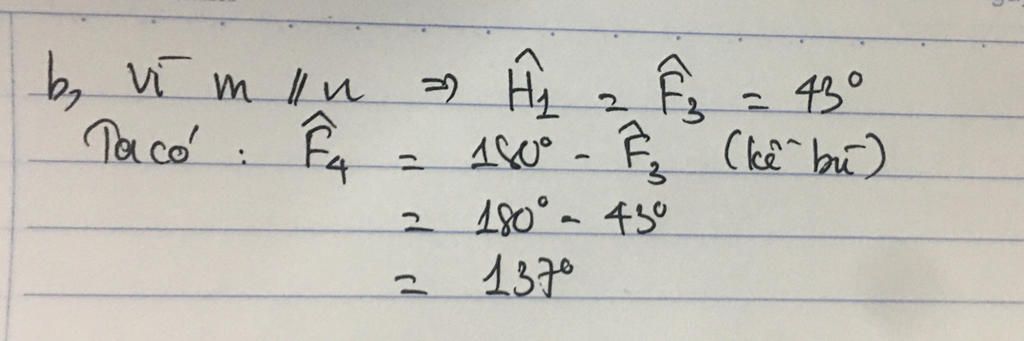 b, Vì m // n ⇒ Ĥ₁ = F̂₃ = 43°
Ta có : F̂₄ = 180° - F̂₃ (kề bù)
= 180° - 43°
= 137°